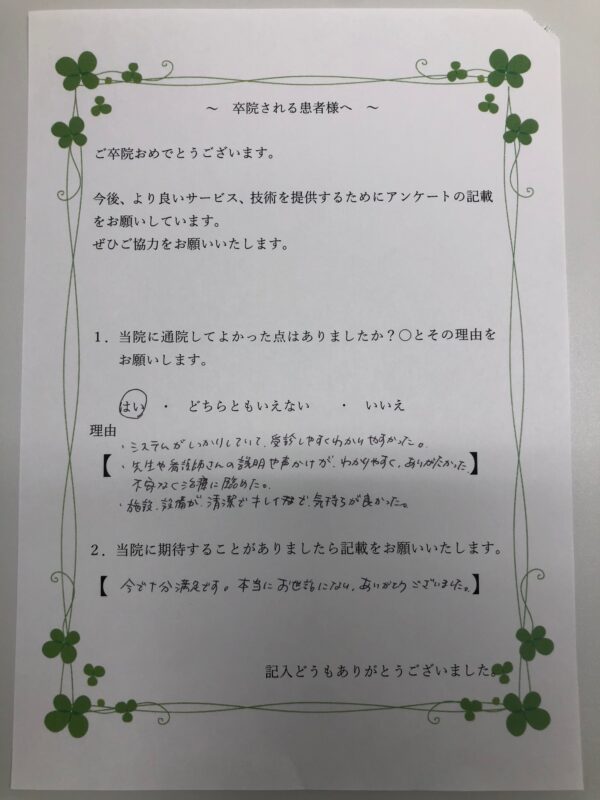 ～　卒院される患者様へ　～
ご卒院おめでとうございます。
今後、より良いサービス、技術を提供するためにアンケートの記載
をお願いしています。
ぜひご協力をお願いいたします。
１．当院に通院してよかった点はありましたか？〇とその理由を
お願いします。
はい　・　どちらともいえない　・　いいえ
理由
・システムがしっかりしていて、受診しやすくわかりやすかった。
【・先生や看護師さんの説明や声かけが、わかりやすく、ありがたかった】
不安なく治療に臨めた。
・施設、設備が、清潔でキレイで、気持ちが良かった。
２．当院に期待することがありましたら記載をお願いいたします。
【今で十分満足です。本当にお世話になり、ありがとうございました。】
記入どうもありがとうございました。